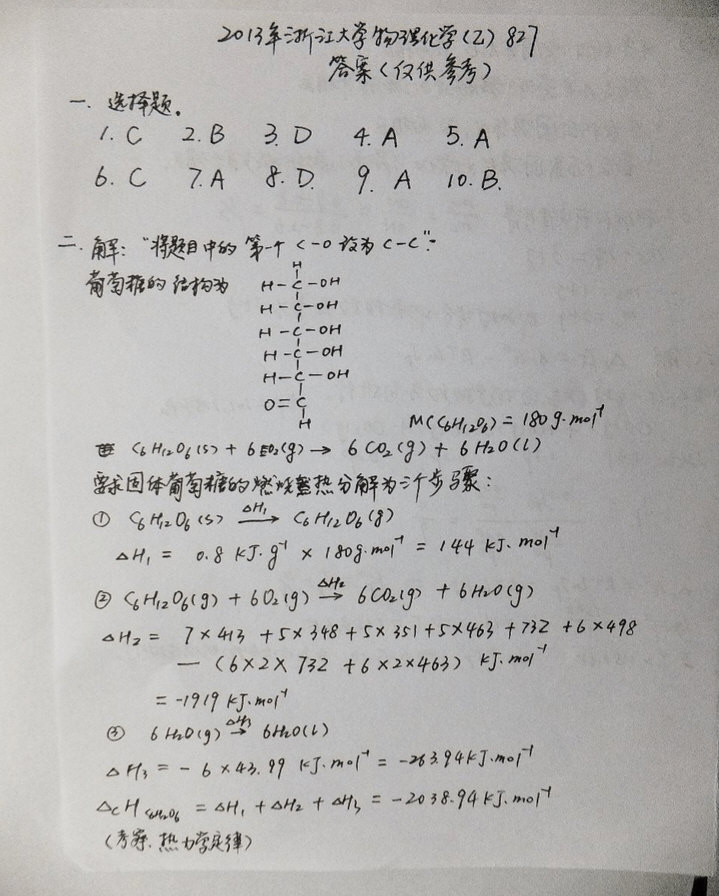 2013年浙江大学物理化学(乙) 827
答案(仅供参考)
一. 选择题。
1. C 2. B 3. D 4. A 5. A
6. C 7. A 8. D. 9. A 10. B.
二. 解: "将题目中的第一个 C-O 改为 C-C".
葡萄糖的结构为
H
H-C-OH
H-C-OH
H-C-OH
H-C-OH
H-C-OH
O=C
H
M(C6H12O6) = 180 g·mol⁻¹
C6H12O6(s) + 6O2(g) → 6CO2(g) + 6H2O(l)
要求固体葡萄糖的燃烧热分解为三个步骤:
① C6H12O6(s) ΔH1→ C6H12O6(g)
ΔH1 = 0.8 kJ·g⁻¹ × 180g·mol⁻¹ = 144 kJ·mol⁻¹
② C6H12O6(g) + 6O2(g) ΔH2→ 6CO2(g) + 6H2O(g)
ΔH2 = 7×413 + 5×348 + 5×351 + 5×463 + 732 + 6×498
— (6×2×732 + 6×2×463) kJ·mol⁻¹
= -1919 kJ·mol⁻¹
③ 6H2O(g) ΔH3→ 6H2O(l)
ΔH3 = - 6×43.99 kJ·mol⁻¹ = -263.94 kJ·mol⁻¹
ΔcH C6H12O6 = ΔH1 + ΔH2 + ΔH3 = -2038.94 kJ·mol⁻¹
(考察. 热力学定律)